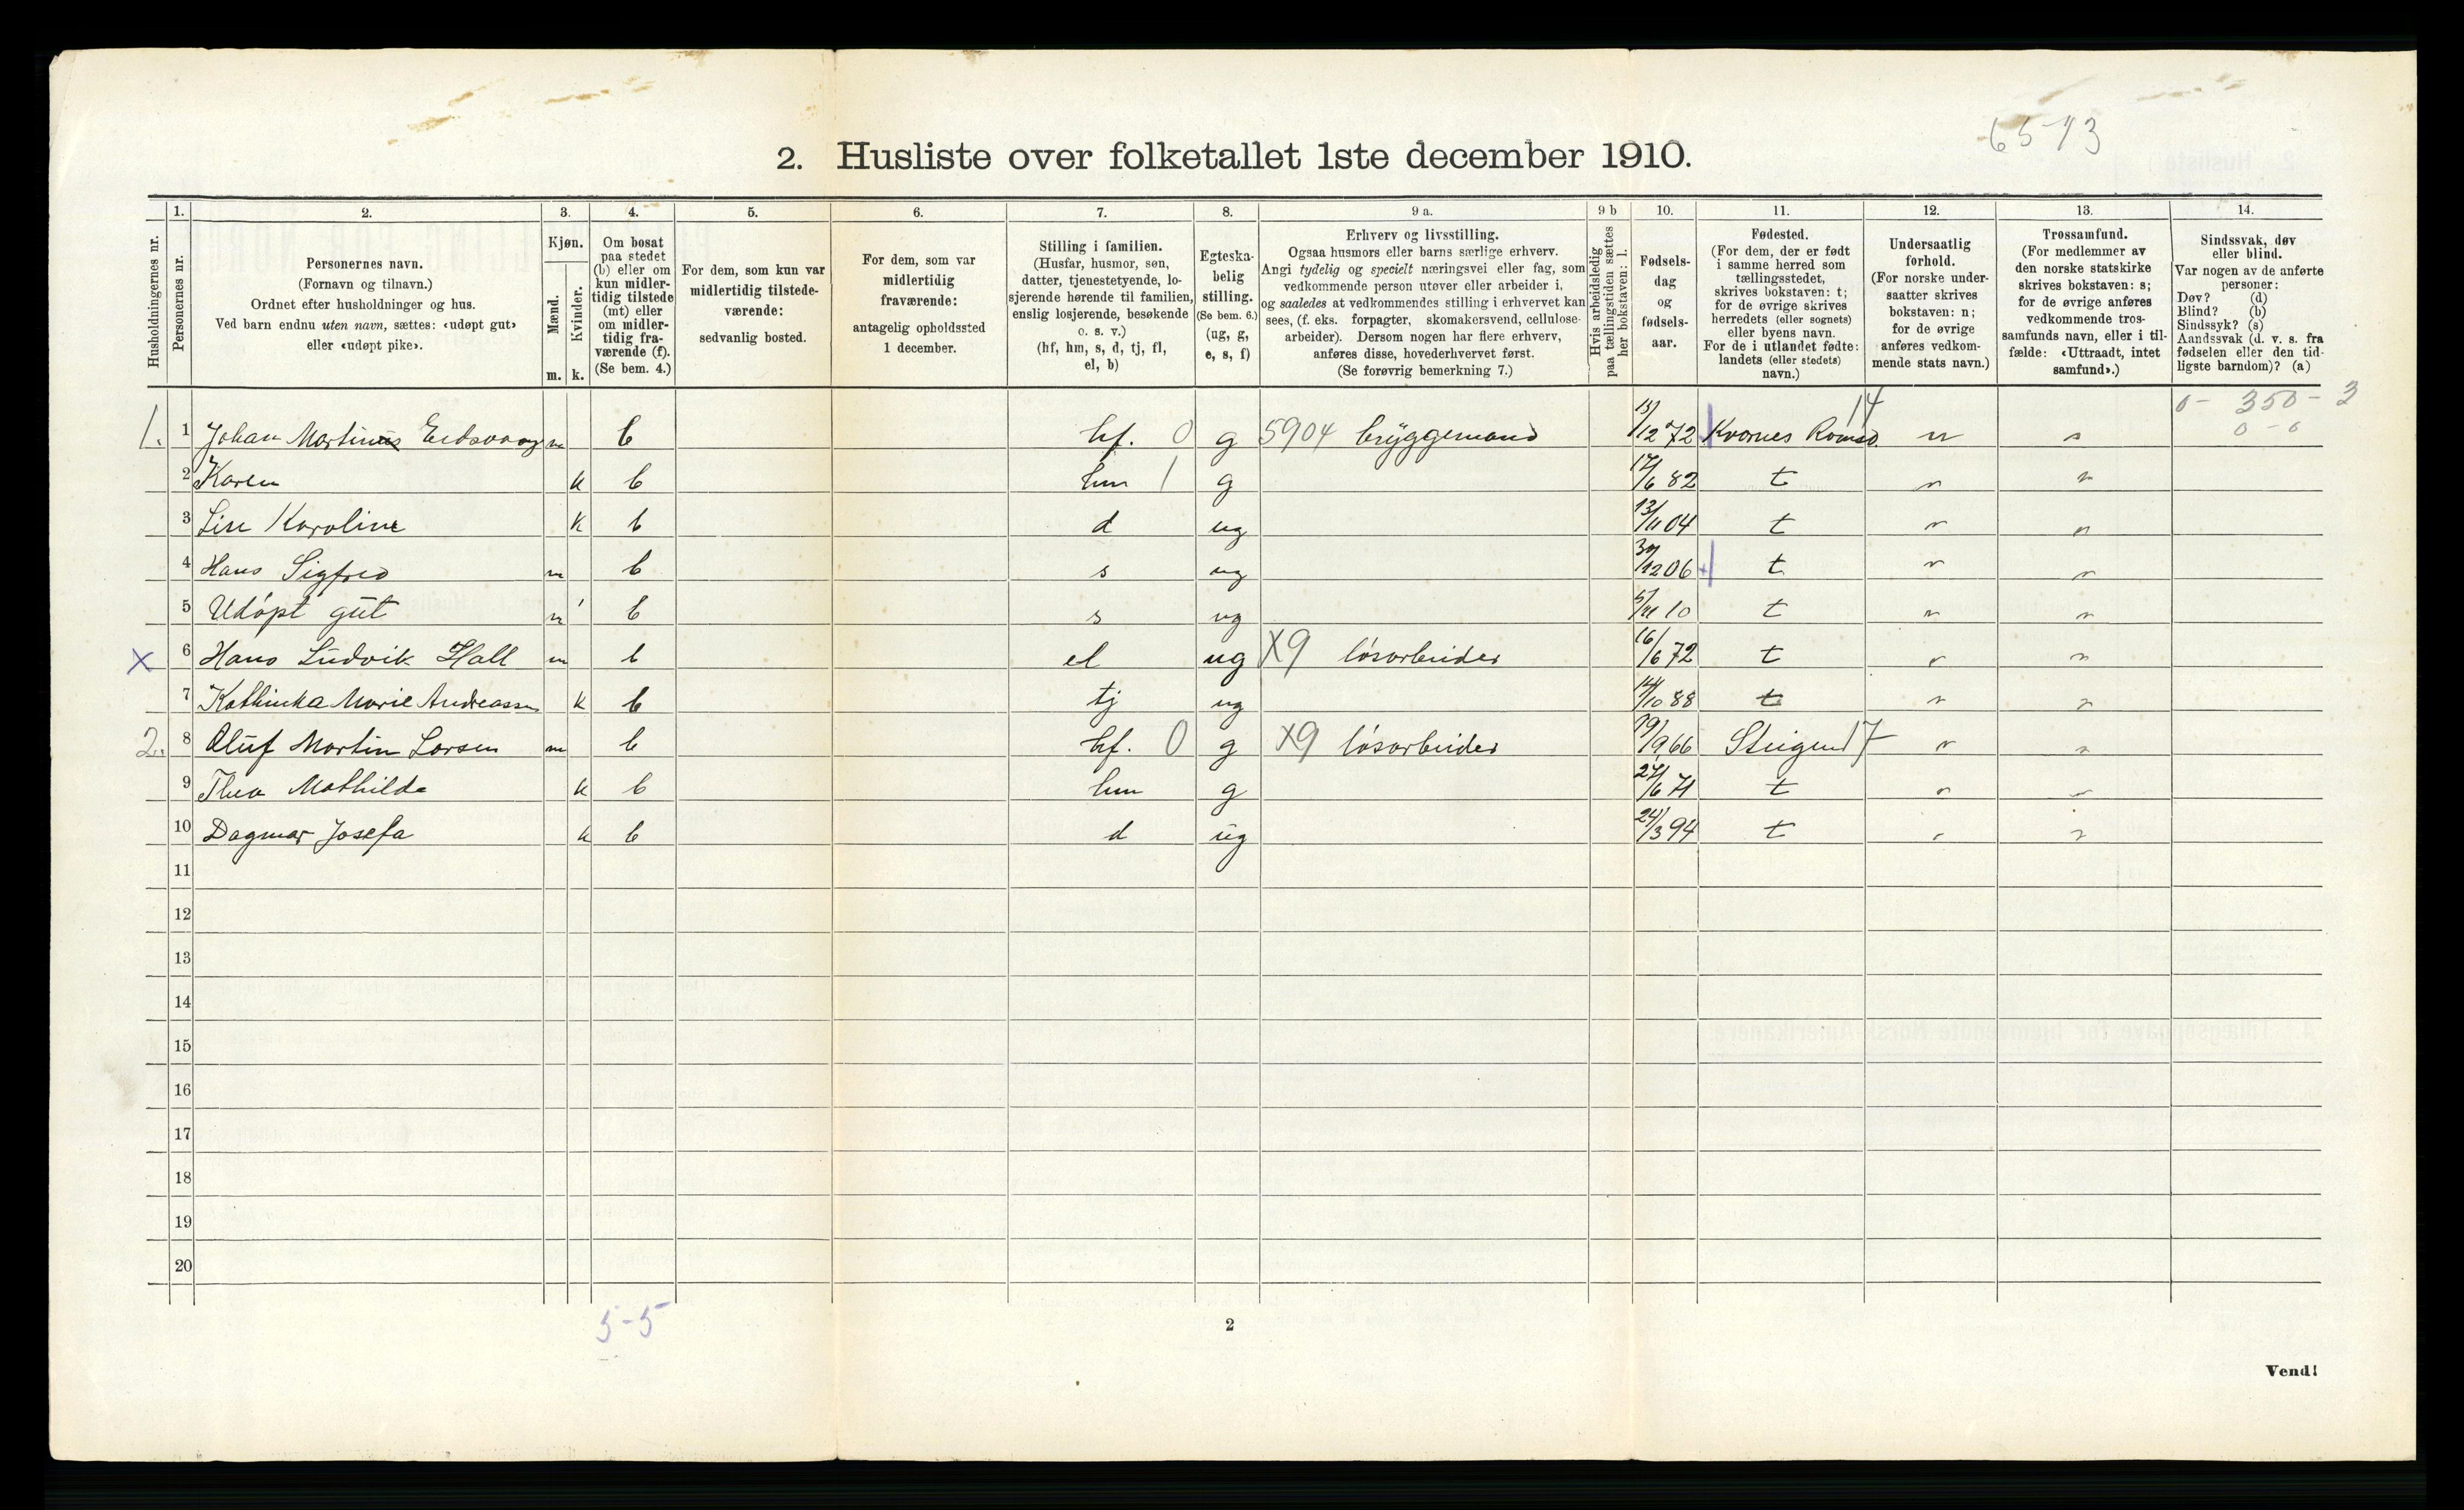 65-13
2. Husliste over folketallet 1ste december 1910.
Husholdningernes nr.
1.
Personernes nr.
2.
Personernes navn.
(Fornavn og tilnavn.)
Ordnet efter husholdninger og hus.
Ved barn endnu uten navn, sættes: «udøpt gut»
eller «udøpt pike».
3.
Kjøn.
Mænd.
Kvinder.
m. k.
4.
Om bosat
paa stedet
(b) eller om
kun midler-
tidig tilstede
(mt) eller
om midler-
tidig fra-
værende (f).
(Se bem. 4.)
5.
For dem, som kun var
midlertidig tilstede-
værende:
sedvanlig bosted.
6.
For dem, som var
midlertidig
fraværende:
antagelig opholdssted
1 december.
7.
Stilling i familien.
(Husfar, husmor, søn,
datter, tjenestetyende, lo-
sjerende hørende til familien,
enslig losjerende, besøkende
o. s. v.)
(hf, hm, s, d, tj, fl,
el, b)
8.
Egteska-
belig
stilling.
(Se bem. 6.)
(ug, g,
e, s, f)
9 a.
Erhverv og livsstilling.
Ogsaa husmors eller barns særlige erhverv.
Angi tydelig og specielt næringsvei eller fag, som
vedkommende person utøver eller arbeider i,
og saaledes at vedkommendes stilling i erhvervet kan
sees, (f. eks. forpagter, skomakersvend, cellulose-
arbeider). Dersom nogen har flere erhverv,
anføres disse, hovederhvervet først.
(Se forøvrig bemerkning 7.)
9 b
Hvis arbeidsledig
paa tællingstiden sættes
her bokstaven: l.
10.
Fødsels-
dag
og
fødsels-
aar.
11.
Fødested.
(For dem, der er født
i samme herred som
tællingsstedet,
skrives bokstaven: t;
for de øvrige skrives
herredets (eller sognets)
eller byens navn.
For de i utlandet fødte:
landets (eller stedets)
navn.)
12.
Undersaatlig
forhold.
(For norske under-
saatter skrives
bokstaven: n;
for de øvrige
anføres vedkom-
mende stats navn.)
13.
Trossamfund.
(For medlemmer av
den norske statskirke
skrives bokstaven: s;
for de øvrige anføres
vedkommende tros-
samfunds navn, eller i til-
fælde: «Uttraadt, intet
samfund».)
14.
Sindssvak, døv
eller blind.
Var nogen av de anførte
personer:
Døv? (d)
Blind? (b)
Sindssyk? (s)
Aandssvak (d. v. s. fra
fødselen eller den tid-
ligste barndom)? (a)
14 0 - 350 - 3
1. 1 Johan Martinus m b hf. 0 g 5904 bryggemand 13/12 72 Kvernes Romsd. n s 0 - 0
2 Karen k b hm 1 g 17/6 82 t n
3 Lise Karoline k b d ug 13/11 04 t n
4 Hans Sigfred m b s ug 30/12 06 t n
5 Udøpt gut m b s ug 5/11 10 t n
x 6 Hans Ludvik Hall m b el ug X9 løsarbeider 16/6 72 t
7 Kathinka Marie Andreassen k b tj ug 14/10 88 t n
2. 8 Oluf Martin Larsen m b hf. 0 g X9 løsarbeider 19/9 66 Steigen 17 n
9 Thea Mathilde k b hm g 27/6 71 t
10 Dagmar Josefa k b d ug 24/3 94 t
11
12
13
14
15
16
17
18
19
20
5-5
2
Vend!